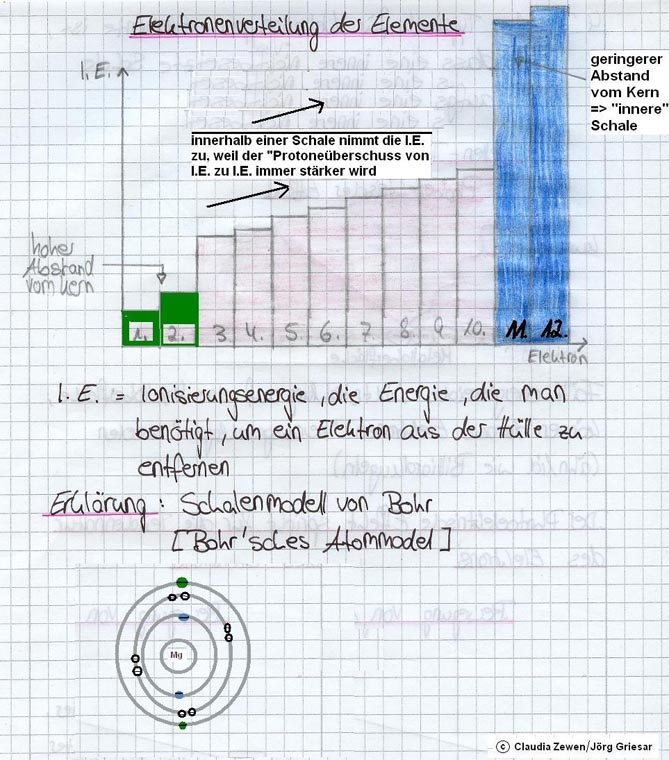 Elektronenverteilung der Elemente
I.E.
geringerer
Abstand
vom Kern
=> "innere"
Schale
innerhalb einer Schale nimmt die I.E.
zu, weil der "Protoneüberschuss von
I.E. zu I.E. immer stärker wird
hoher
Abstand
vom Kern
1. 2. 3. 4. 5. 6. 7. 8. 9. 10. 11. 12.
Elektron
I.E. = Ionisierungsenergie, die Energie, die man
benötigt, um ein Elektron aus der Hülle zu
entfernen
Erklärung: Schalenmodell von Bohr
[Bohr'sches Atommodel]
Mg
© Claudia Zewen/Jörg Griesar